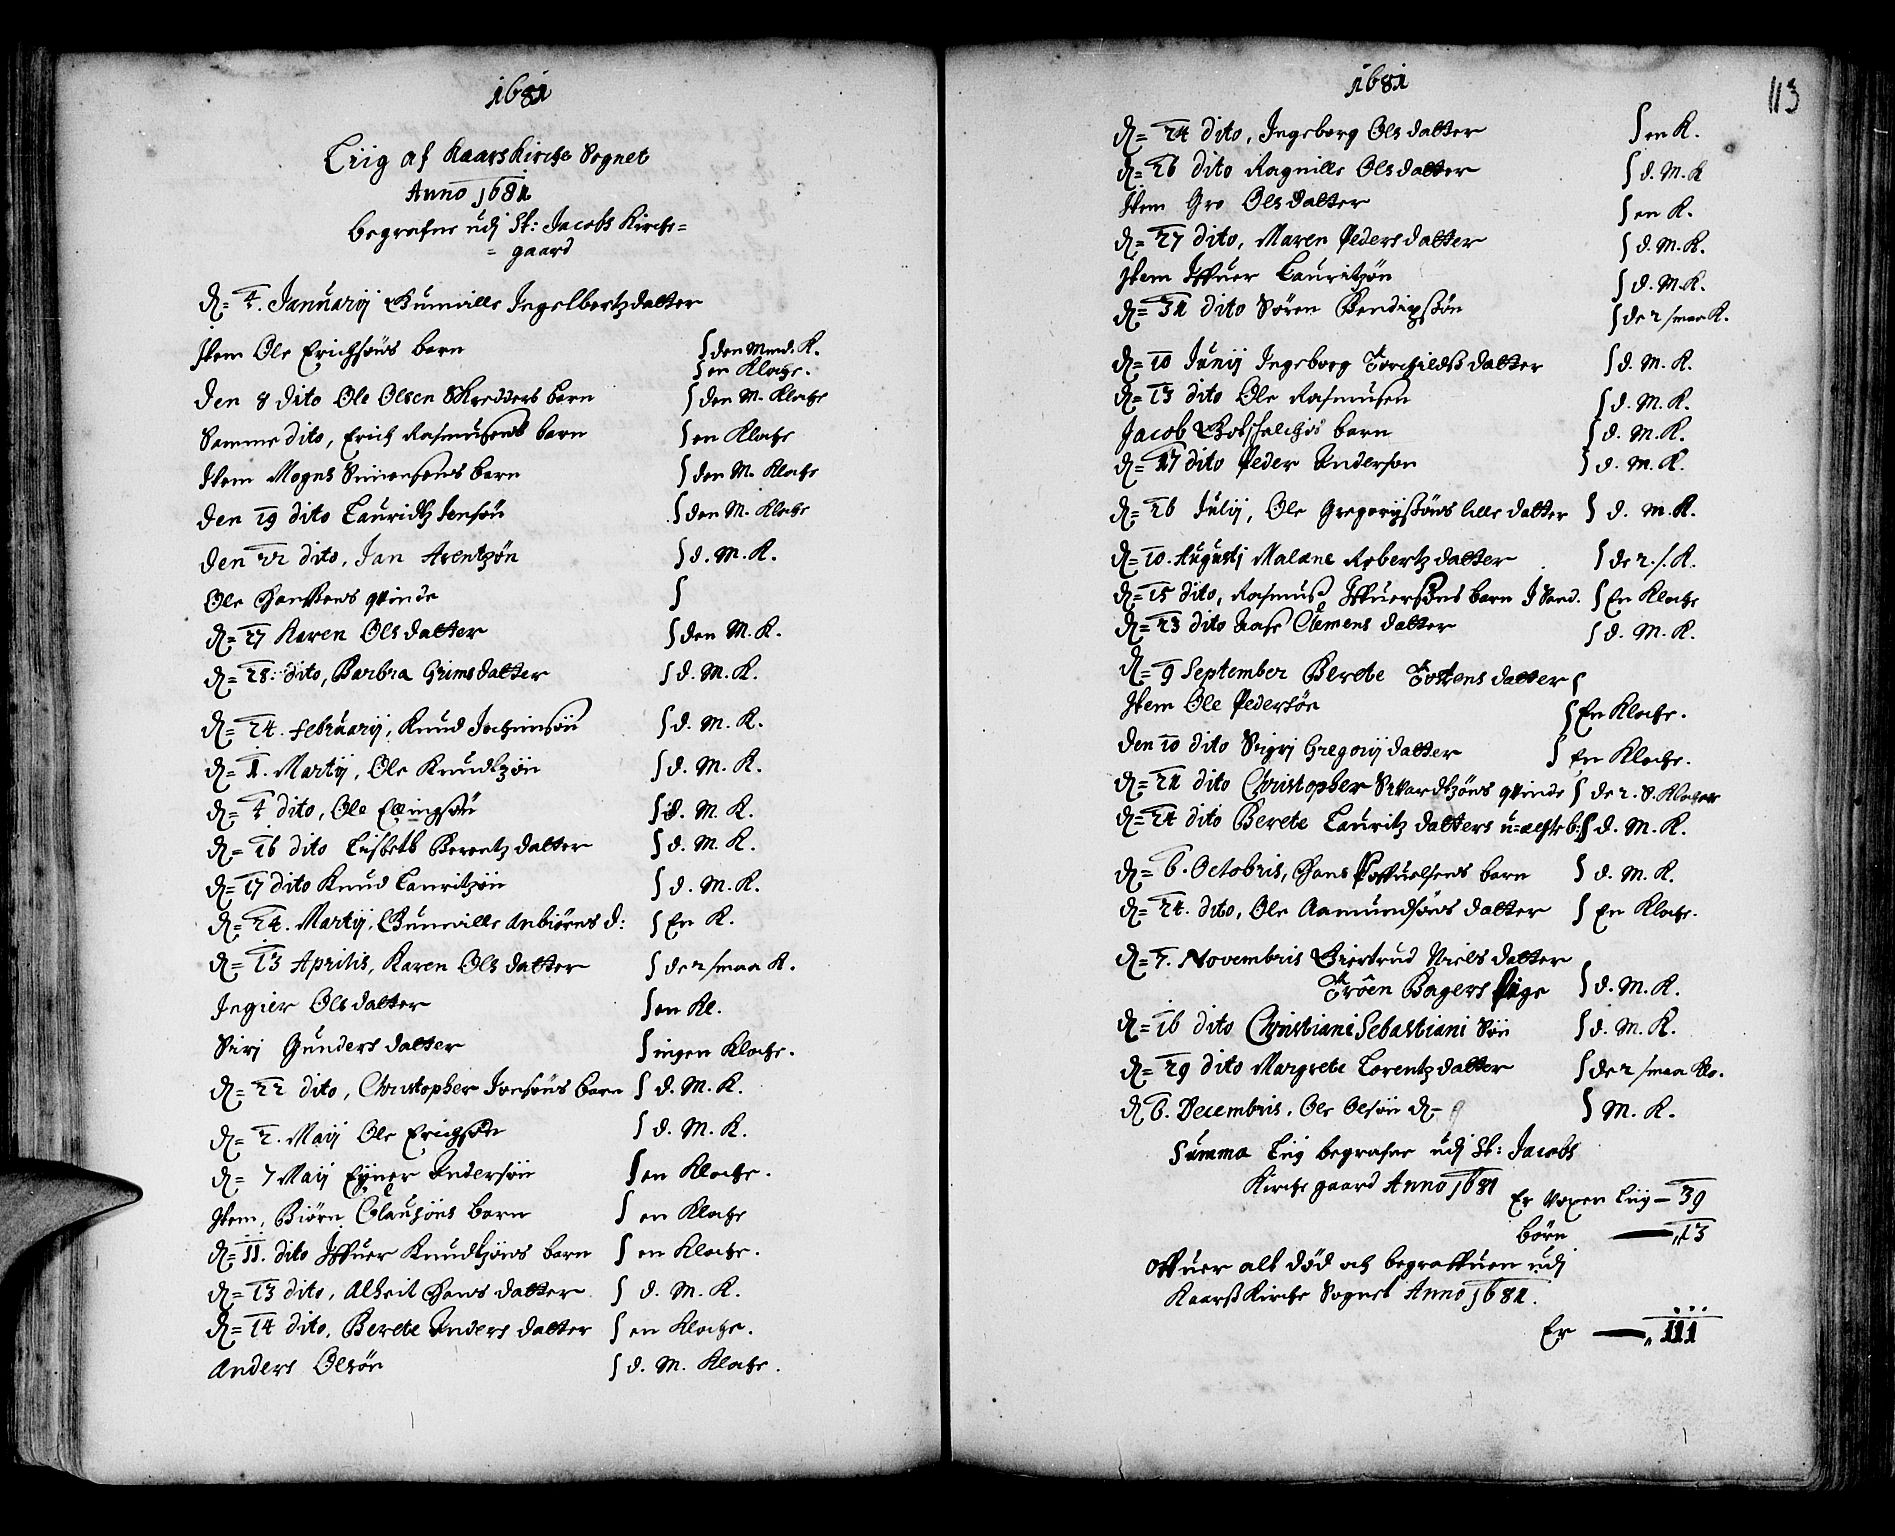 1681
Liig af Kaars Kirche Sognet
Anno 1681
begrafne udj St: Jacobs Kirche=
= gaard
D= 4. Januarij Gunnille Ingelbertzdatter
Item Ole Erichsøns barn ʃ den Mind. K.
ʃ en Kloche.
Den 8 dito Ole Olsen Skredders barn ʃ den M. Kloche
Samme dito, Erich Rasmusens barn ʃ en Kloche
Item Mogns Simensens barn ʃ den M. Kloche
Den 19 dito Lauridtz Jensøn ʃ den M. Kloche
Den 22 dito, Jan Arentzøn ʃ d. M. K.
Ole Hansens qvinde ʃ
D= 27 Karen Ols datter ʃ den M. K.
D= 28. dito, Barbra Grims datter ʃ d. M. K.
D= 24. februarij, Knud Jochimsøn ʃ d. M. K.
D= 1. Martij, Ole Knudtzøn ʃ d. M. K.
D= 4 dito, Ole Ellingsøn ʃ d. M. K.
D= 16 dito Lisbeth Berentz datter ʃ d. M. K.
D= 17 dito Knud Lauritzøn ʃ d. M. K.
D= 24. Martij, Gunnille Anbiørns d: ʃ En K.
D= 13 Aprilis, Karen Ols datter ʃ de 2 smaa K.
Ingier Olsdatter ʃ en Kl.
Siri Gunders datter ʃ ingen Kloche.
D= 22 dito, Christopher Jonsøns barn ʃ d. M. K.
D= 2. Maij Ole Erichsøn ʃ d. M. K.
D= 7 Maij Eyner Andersøn ʃ en Kloche.
Item, Biørn Clausøns barn ʃ en Kloche
D= 11. dito Iffuer Knudtzøns barn ʃ en Kloche.
D= 13 dito, Alheit Hans datter ʃ d. M. K.
D= 14 dito, Berete Anders datter ʃ en Kloche.
Anders Olsøn ʃ d. M. Kloche.
1681
113
D= 24 dito, Ingeborg Ols datter ʃ en K.
D= 26 dito Ragnille Ols datter ʃ d. M. K
Item Gro Ols datter ʃ en K.
D= 27 dito, Maren Peders datter ʃ d. M. K.
Item Iffuer Lauritzøn ʃ d. M. K.
D= 31 dito Søren Bendixsøn ʃ de 2 smaa K.
D= 10 Junij Ingeborg Torchildss datter ʃ d. M. K.
D= 13 dito Ole Rasmusen ʃ d. M. K.
Jacob Gotschalchs barn ʃ d. M. K.
D= 17 dito Peder Anderson ʃ d. M. K.
D= 26 Julij, Ole Gregorijsøns lille datter ʃ d. M. K.
D= 10. Augusti Malene Robertz datter ʃ de 2. s. K.
D= 15 dito, Rasmus Iffuersøns barn I Sand. ʃ En Kloche
D= 23 dito Aase Clemens datter ʃ d. M. K.
D= 9 September Berete Tostens datter ʃ
Item Ole Pedersøn ʃ En Kloche.
Den 10 dito Sigri Gregorij datter ʃ En Kloche.
D= 21 dito Christopher Sivardtzøns qvinde ʃ de 2. S. Klocher
D= 24 dito Berete Lauritz datters u=ægte b: ʃ d. M. K.
D= 6. Octobris, Hans Poffuelsens barn ʃ d. M. K.
D= 24. dito, Ole Aamundsøns datter ʃ En Kloche.
D= 7. Novembris Giertrud Niels datter
Trøen Bagers Pige ʃ d. M. K.
D= 16 dito Christiani Sebastiani Søn ʃ d. M. K.
D= 29 dito Margrete Lorentz datter ʃ de 2 smaa Klo.
D 6. Decembris, Ole Olsøn ʃ M. K.
Summa Liig begrafne udj St: Jacobs
Kirche gaard Anno 1681
Er Voxen Liig — 39
børn — 13
Offuer alt død och begraffuen udj
Kaarss Kirche Sognet Anno 1681.
Er — 111